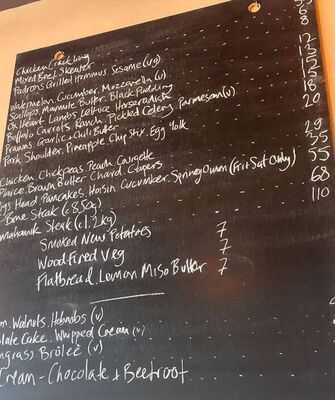 Chicken Crackling
Mixed Beef Skewer 6
Padron's Grilled Hummus Sesame (vg) 8
Watermelon Cucumber Mozzarella (v) 12
Scallops Marmite Butter Black Pudding
Ox Heart Lardo Lettuce Horseradish
Buffalo Carrots Ranch Pickled Celery Parmesan (v)
Prawns Garlic + Chilli Butter 18
Pork Shoulder, Pineapple, Chip Stix Egg Yolk 20
Chicken Chickpeas Peach Courgette 29
Plaice Brown Butter Chard Capers 35
Pigs Head Pancakes Hoisin Cucumber Spring Onion (Fri+Sat Only) 55
Bone Steak (c850g) 68
Tomahawk Steak (c1.2kg) 110
Smoked New Potatoes 7
Wood Fired Veg 7
Flatbread Lemon Miso Butter 7
Walnuts Hobnobs (v)
Cake Whipped Cream (v)
Brûlée (v)
Cream - Chocolate + Beetroot